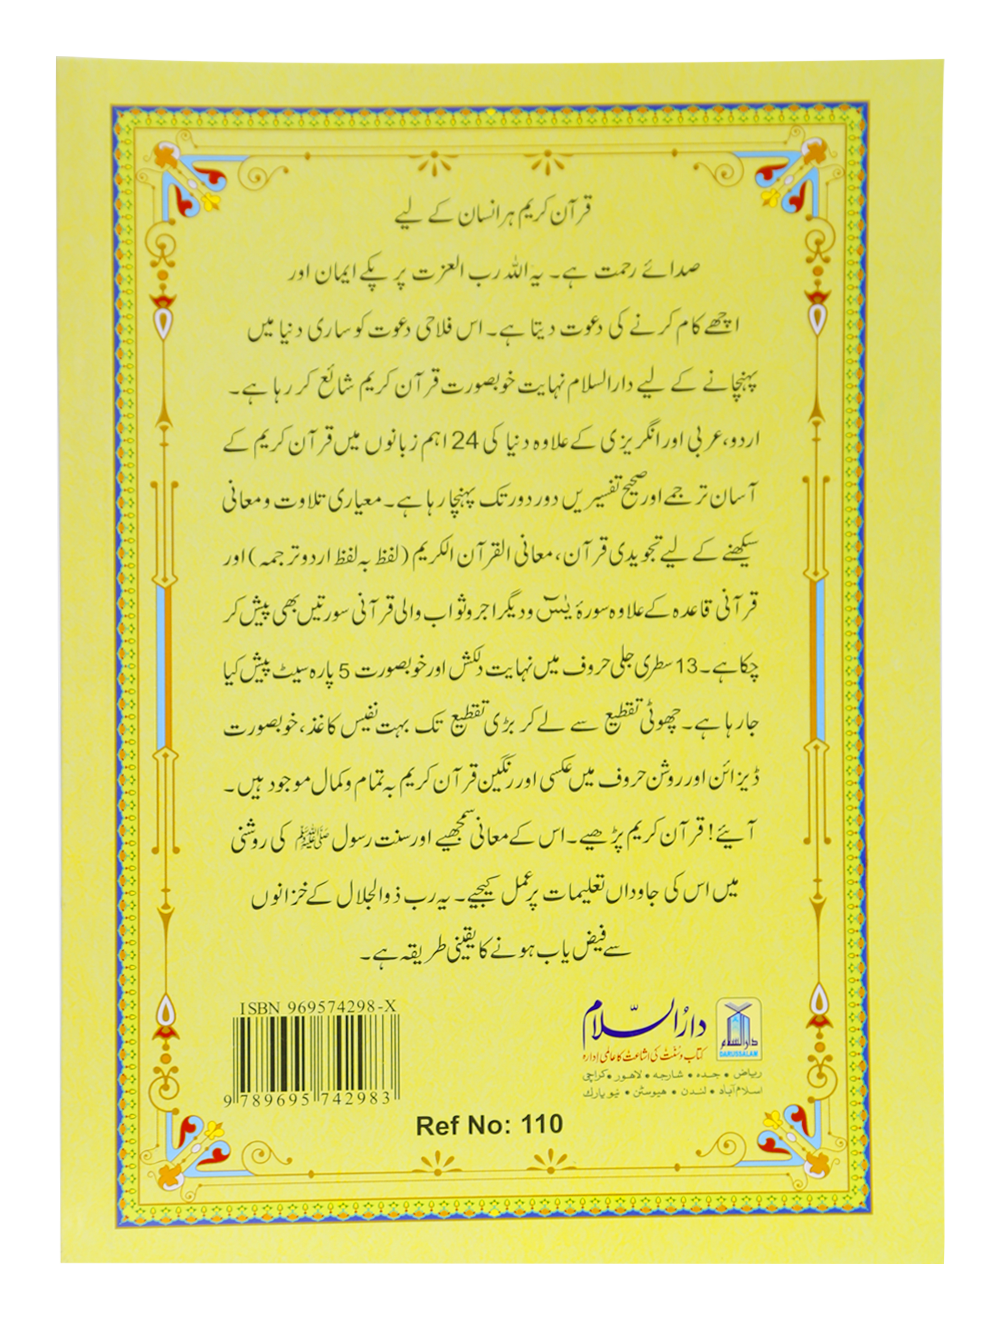 قرآن کریم ہر انسان کے لیے
صدائے رحمت ہے۔ یہ اللہ رب العزت پر پکے ایمان اور
اچھے کام کرنے کی دعوت دیتا ہے۔ اس فلاحی دعوت کو ساری دنیا میں
پہنچانے کے لیے دارالسلام نہایت خوبصورت قرآن کریم شائع کر رہا ہے۔
اردو، عربی اور انگریزی کے علاوہ دنیا کی 24 اہم زبانوں میں قرآن کریم کے
آسان ترجمے اور صحیح تفسیریں دور دور تک پہنچا رہا ہے۔ معیاری تلاوت و معانی
سیکھنے کے لیے تجویدی قرآن، معانی القرآن الکریم (لفظ بہ لفظ اردو ترجمہ) اور
قرآنی قاعدہ کے علاوہ سورۂ یٰسٓ و دیگر اجر و ثواب والی قرآنی سورتیں بھی پیش کر
چکا ہے۔ 13 سطری جلی حروف میں نہایت دلکش اور خوبصورت 5 پارہ سیٹ پیش کیا
جا رہا ہے۔ چھوٹی تقطیع سے لے کر بڑی تقطیع تک بہت نفیس کاغذ، خوبصورت
ڈیزائن اور روشن حروف میں عکسی اور رنگین قرآن کریم بہ تمام و کمال موجود ہیں۔
آیئے! قرآن کریم پڑھیے۔ اس کے معانی سمجھیے اور سنت رسول ﷺ کی روشنی
میں اس کی جاوداں تعلیمات پر عمل کیجیے۔ یہ رب ذوالجلال کے خزانوں
سے فیض یاب ہونے کا یقینی طریقہ ہے۔
دارالسلام
دارُالسّلام
DARUSSALAM
کتاب و سُنّت کی اشاعت کا عالمی ادارہ
ریاض • جدہ • شارجہ • لاہور • کراچی
اسلام آباد • لندن • ہیوسٹن • نیو یارک
ISBN 969574298-X
9 789695 742983
Ref No: 110